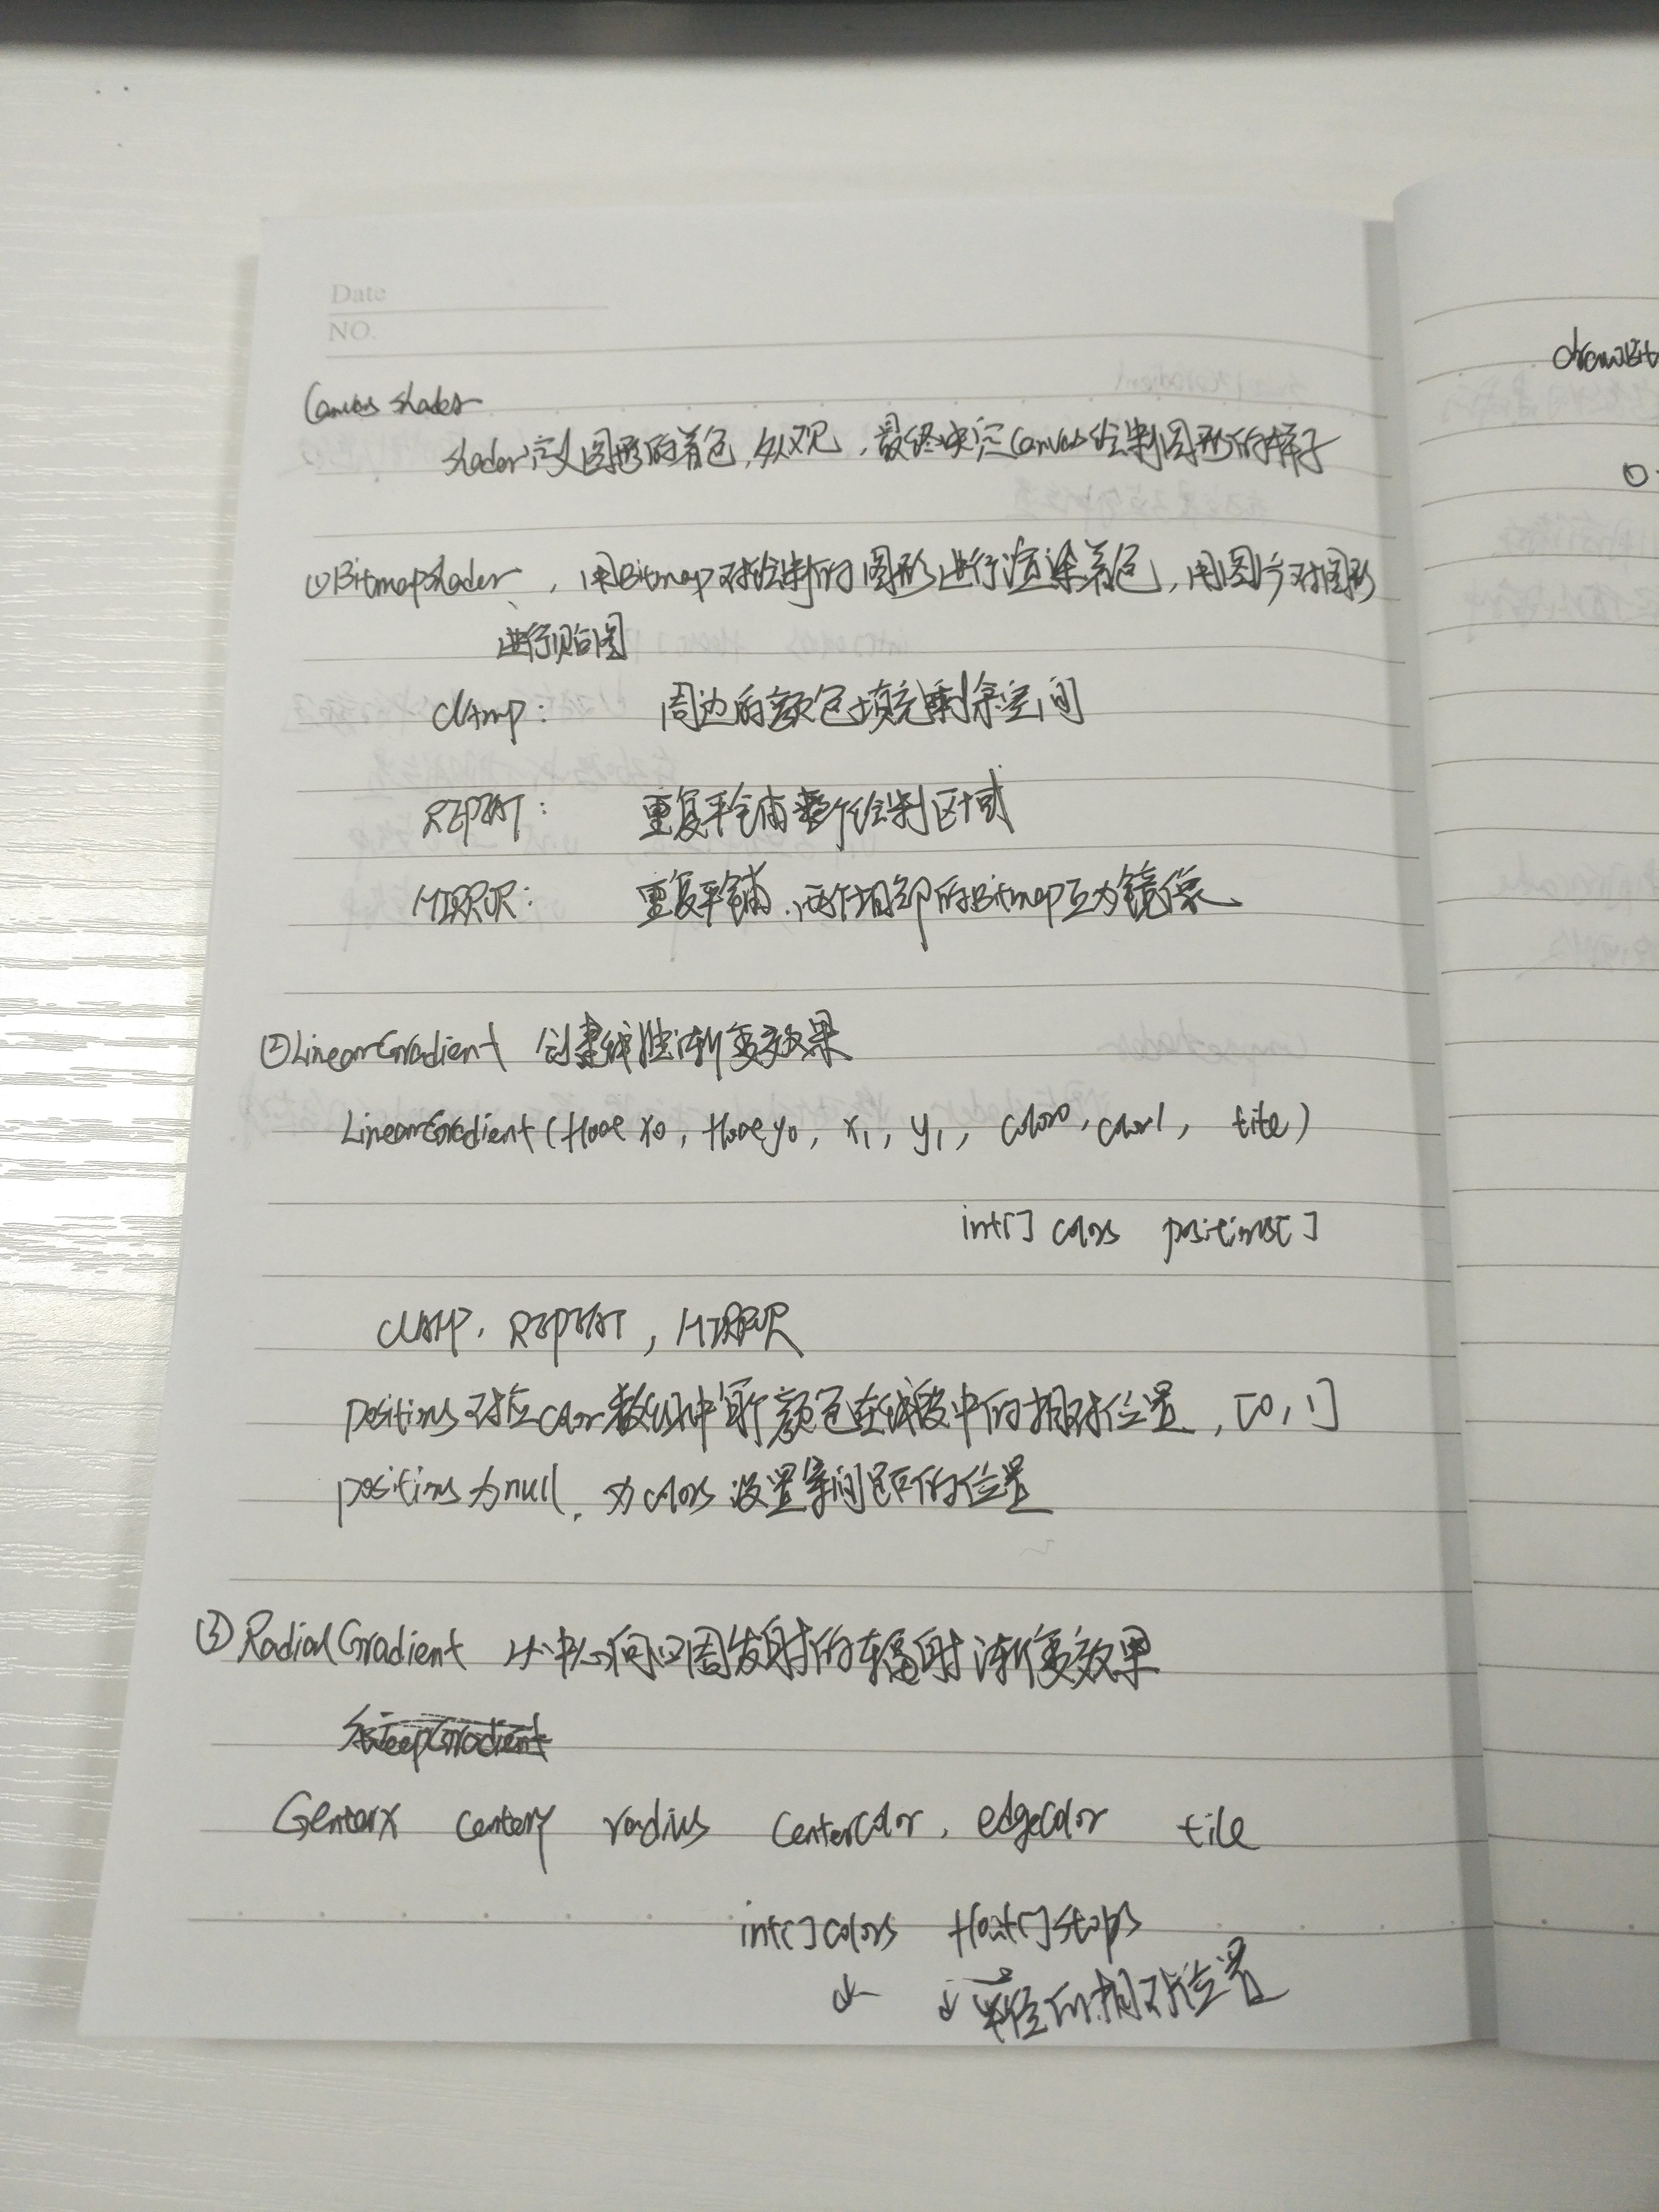 Date
NO.
Canvas Shader
Shader定义图形的着色,外观,最终决定Canvas绘制图形的样子
①BitmapShader,用Bitmap对绘制的图形进行渲染着色,用图片对图形
进行贴图
CLAMP: 周边的颜色填充剩余空间
REPEAT: 重复平铺整个绘制区域
MIRROR: 重复平铺,两个相邻的Bitmap互为镜像
②LinearGradient 创建线性渐变效果
LinearGradient(float x0, float y0, x1, y1, color0, color1, tile)
int[] colors positions[]
CLAMP, REPEAT, MIRROR
positions对应color数组中每个颜色在线段中的相对位置,[0,1]
positions为null, 为colors设置等间距的位置
③RadialGradient 以中心向四周发射的辐射渐变效果
SweepGradient
CenterX centerY radius centerColor, edgeColor tile
int[]colors float[]stops
↓ ↓ 半径的相对位置